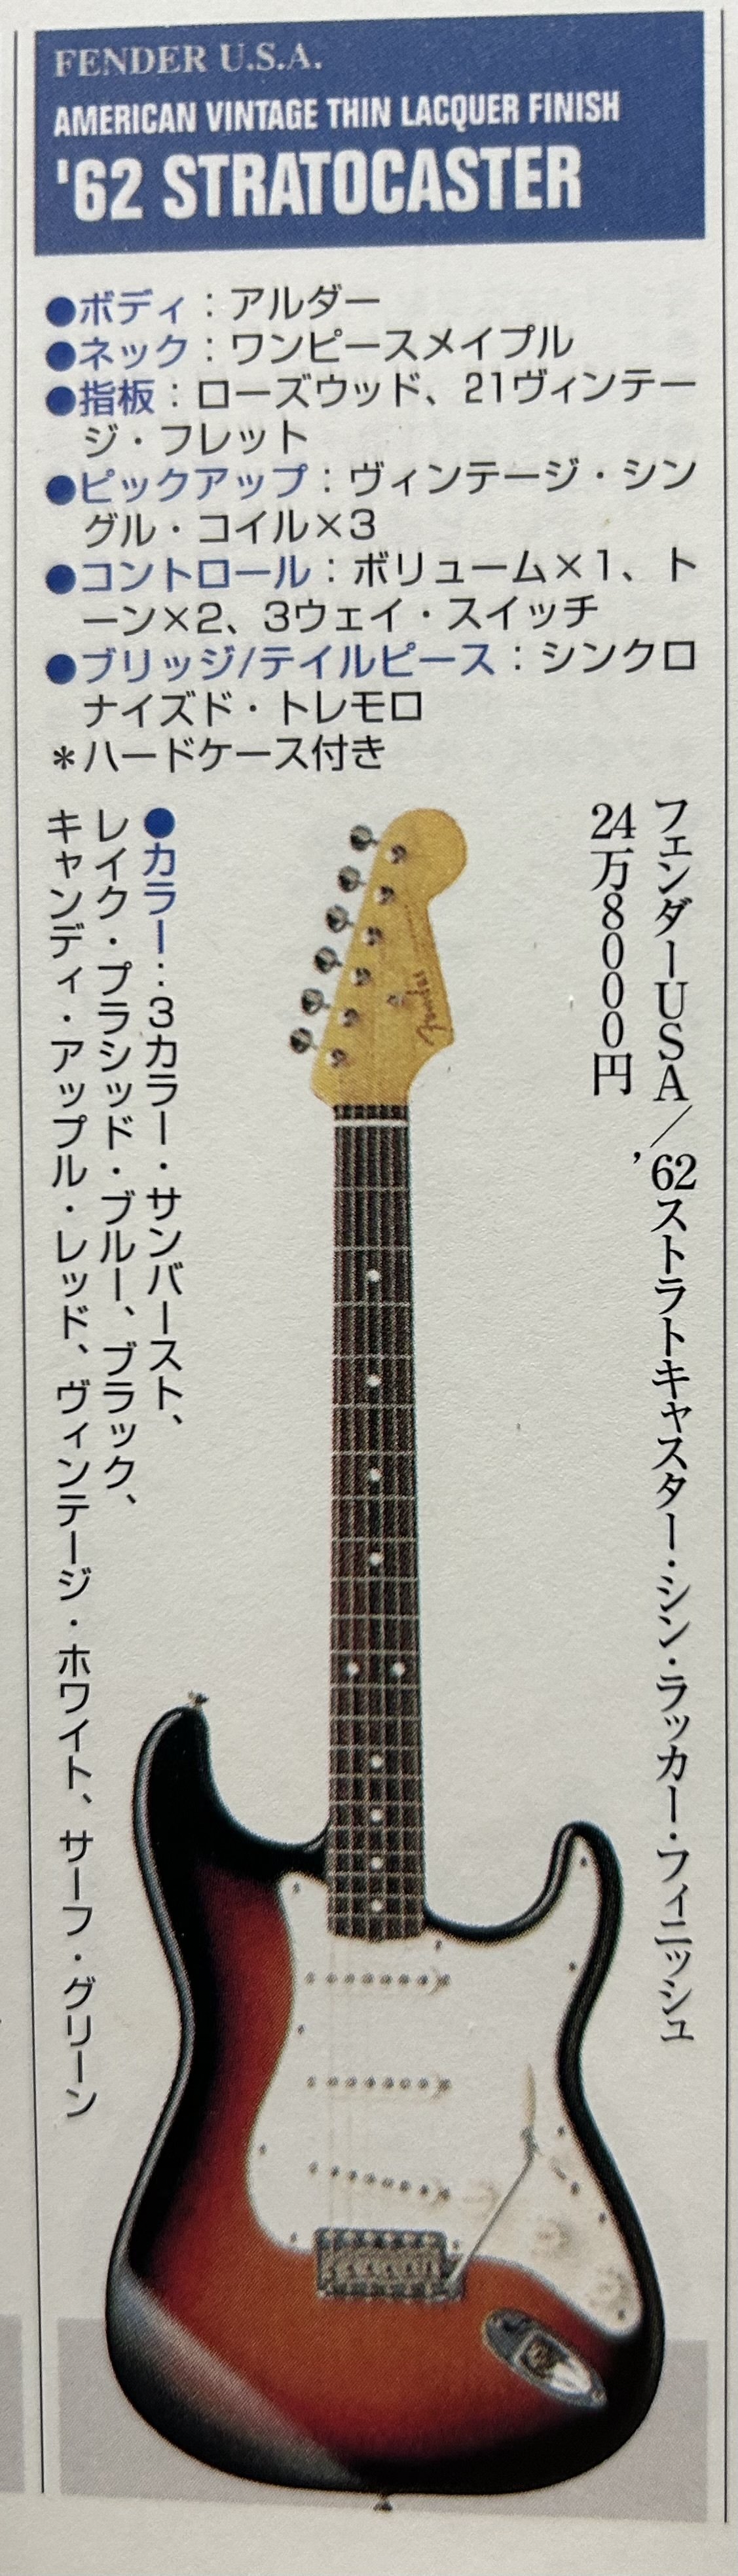 FENDER U.S.A.
AMERICAN VINTAGE THIN LACQUER FINISH
'62 STRATOCASTER
●ボディ：アルダー
●ネック：ワンピースメイプル
●指板：ローズウッド、21ヴィンテー
ジ・フレット
●ピックアップ：ヴィンテージ・シン
グル・コイル×3
●コントロール：ボリューム×1、ト
ーン×2、3ウェイ・スイッチ
●ブリッジ/テイルピース：シンクロ
ナイズド・トレモロ
＊ハードケース付き
フェンダーUSA／'62ストラトキャスター・シン・ラッカー・フィニッシュ
24万8000円
Fender
●カラー：3カラー・サンバースト、
レイク・プラシッド・ブルー、ブラック、
キャンディ・アップル・レッド、ヴィンテージ・ホワイト、サーフ・グリーン